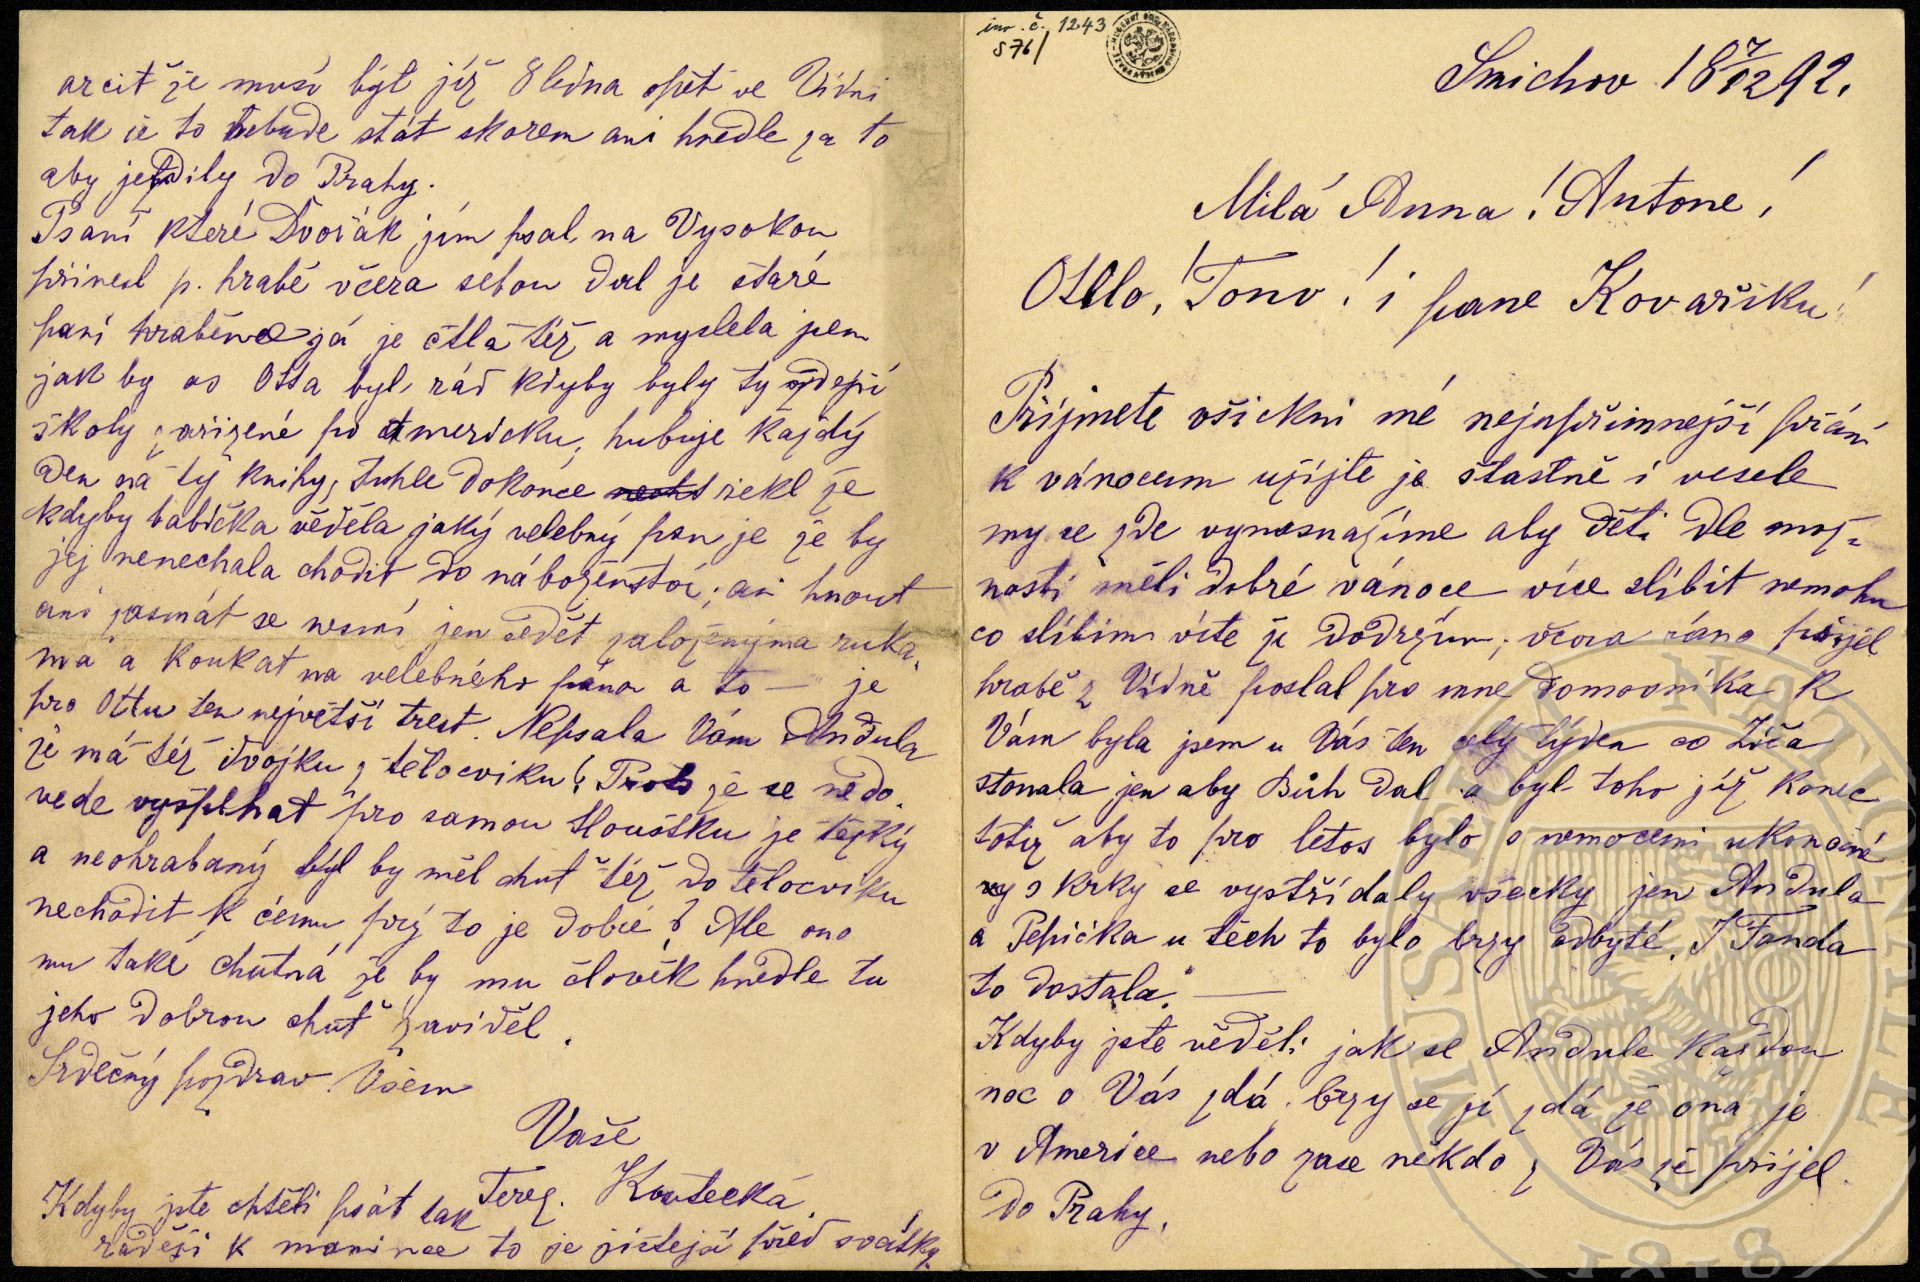 inv. č. 1243
S 76/
Smichov 18 7/12 92.
Milá Anna! Antone!
Otllo! Tono! i pane Kovařiku!
Přijmete všickni mé nejupřimnejší přání
k vánocum užijte je štastně i vesele
my se zde vynasnažíme aby děti dle mož-
nosti měli dobré vánoce více slíbit nemohu
co slíbim víte že dodržím, včera ráno přijel
hrabě z Vídně poslal pro mne domovníka k
Vám byla jsem u Vás ten celý týden co
stonala jen aby Bůh dal a byl toho již konec
totiž aby to pro letos bylo s nemocemi ukončené
s krky se vystřídaly všecky jen Andula
a Pepička u těch to bylo brzy odbyté. I Fanda
to dostala. —
Kdyby jste věděli jak se Andule každou
noc o Vás zdá. brzy se jí zdá že ona je
v Americe nebo zase někdo z Vás že přijel
do Prahy.
arcit že musí být již 8 ledna opět ve Vídni
tak že to nebude stát skorem ani hnedle za to
aby jezdily do Prahy.
Psaní které Dvořák jim psal na Vysokou
přinesl p. hrabě včera sebou dal je staré
paní hraběnce já je četla též a myslela jsem
jak by as Otta byl rád kdyby byly ty zdejší
školy zařizené po Americku, hubuje každý
den na ty knihy, tuhle dokonce řekl že
kdyby babička věděla jaký velebný pan je že by
jej nenechala chodit do náboženství, ani hnout
ani zasmát se nesmí jen sedět založenýma ruka-
ma a koukat na velebného pána a to — je
pro Ottu ten největší trest. Nepsala Vám Andula
že má též dvojku z tělocviku? Proto že se nedo-
vede vyšplhat pro samou tloušťku je težký
a neohrabaný byl by měl chuť též do tělocviku
nechodit k čemu prý to je dobré? Ale ono
mu také chutná že by mu člověk hnedle tu
jeho dobrou chuť zaviděl.
Srdečný pozdrav Všem
Vaše
Terez. Koutecká.
Kdyby jste chtěli psát tak
raději k mamince to je jistejší před svátky.
MUSAEUM NATIONALE
1818